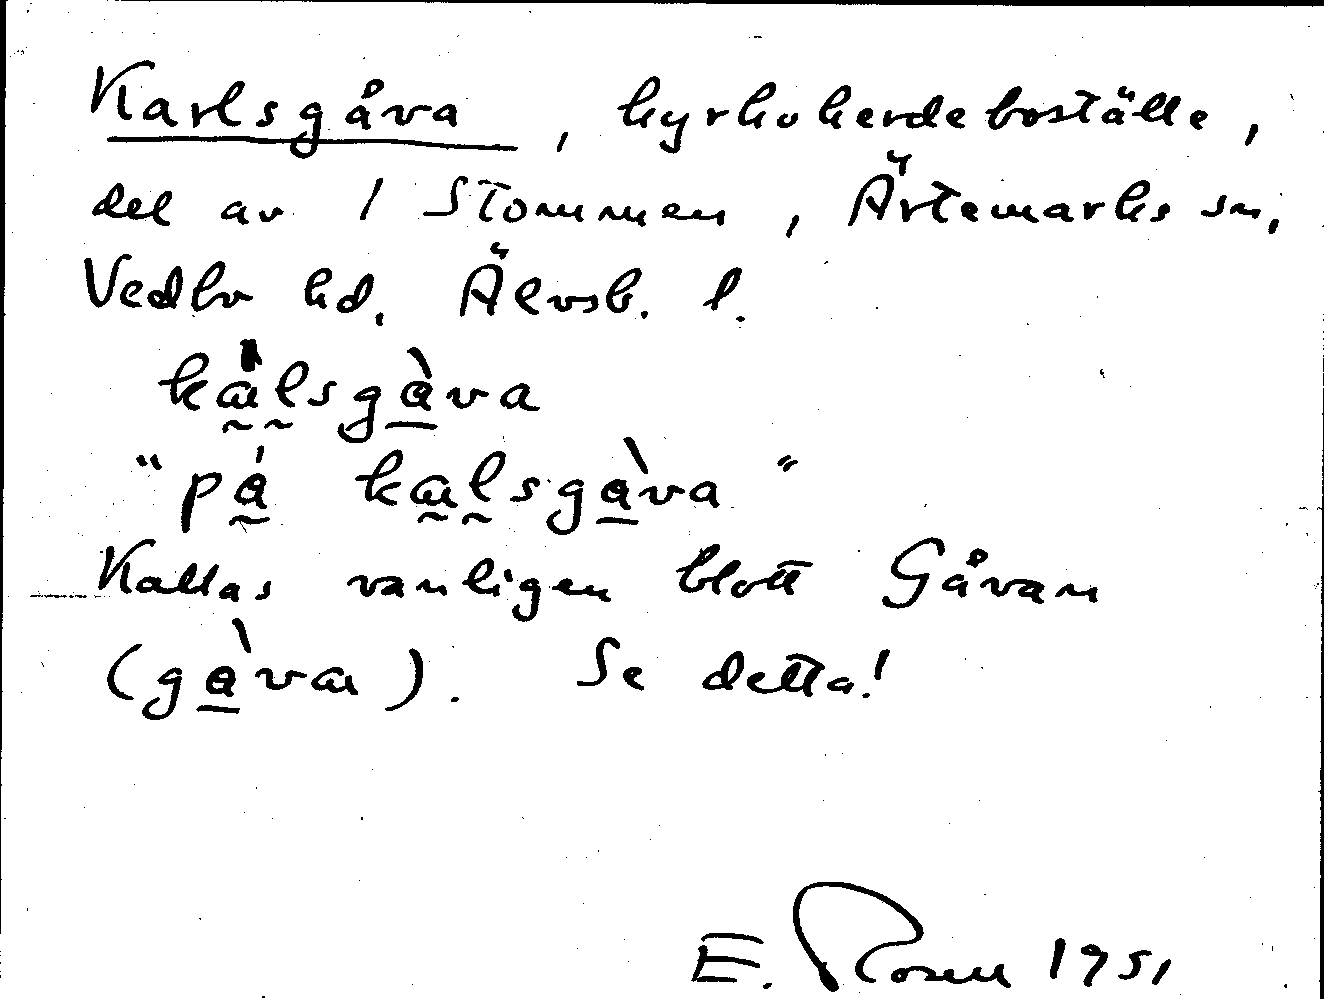 Karlsgåva, kyrkoherdeboställe,
del av 1 Stommen, Ärtemarks sn,
Vedbo hd, Älvsb. l.
kàlsgàva
"pá kalsgàva"
Kallas vanligen blott Gåvan
(gàvan). Se detta!
E. Rosen 1951